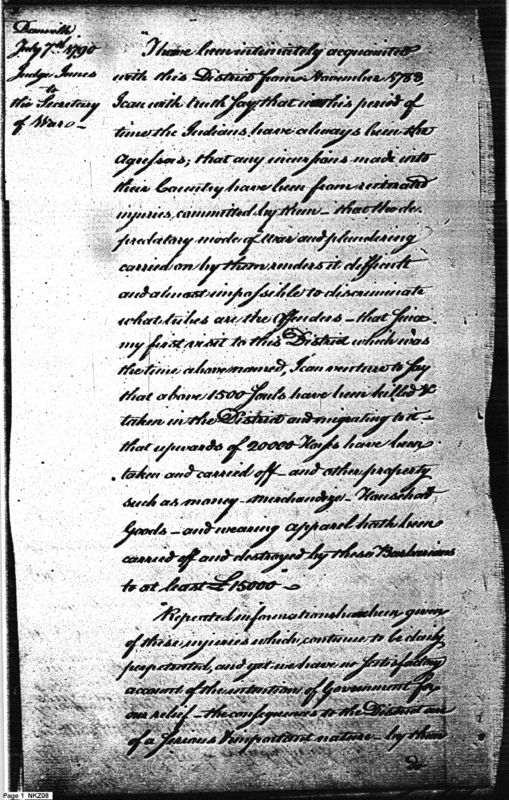 Danville
July 7th 1790
Judge Innes
to
the Secretary
of War —
"I have been intimately acquainted
with this District from November 1783,
I can with truth say that in this period of
time the Indians have always been the
agressors; that any incursions made into
their Country have been from reiterated
injuries committed by them — that the de-
predatory mode of war and plundering
carried on by them renders it difficult
and almost impossible to discriminate
what tribes are the offenders — that since
my first visit to this District which was
the time above named, I can venture to say
that above 1500 souls have been killed &
taken in the District and migrating to it —
that upwards of 20000 Horses have been
taken and carried off — and other property
such as money — Merchandize — Household
Goods — and wearing apparel hath been
carried off and destroyed by these Barbarians
to at least £15000 —
"Repeated informations have been given
of these injuries which continue to be daily
perpetrated, and yet we have no satisfactory
account of the intention of Government for
our relief — the consequences to the District are
of a serious & important nature — by them
&
Page 1 NKZ08